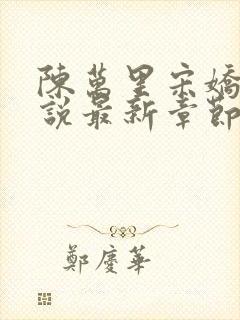 陳萬里宋嬌
說最新章節
鄭慶華